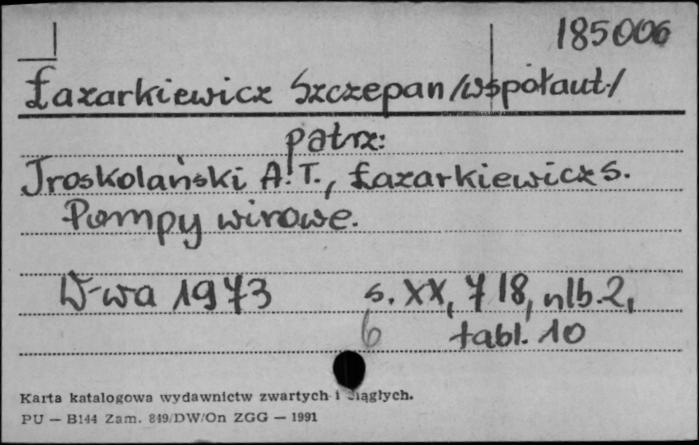 185006
Łazarkiewicz Szczepan /współaut./
patrz:
Troskolański A.T., Łazarkiewicz S.
Pompy wirowe.
W-wa 1973 s. XX, 718, nlb. 2,
6 tabl. 10
Karta katalogowa wydawnictw zwartych i ciągłych.
PU — B144 Zam. 849/DW/On ZGG — 1991